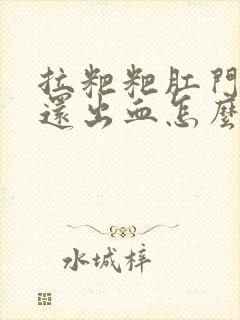 拉粑粑肛門
還出血怎麼
水城梓